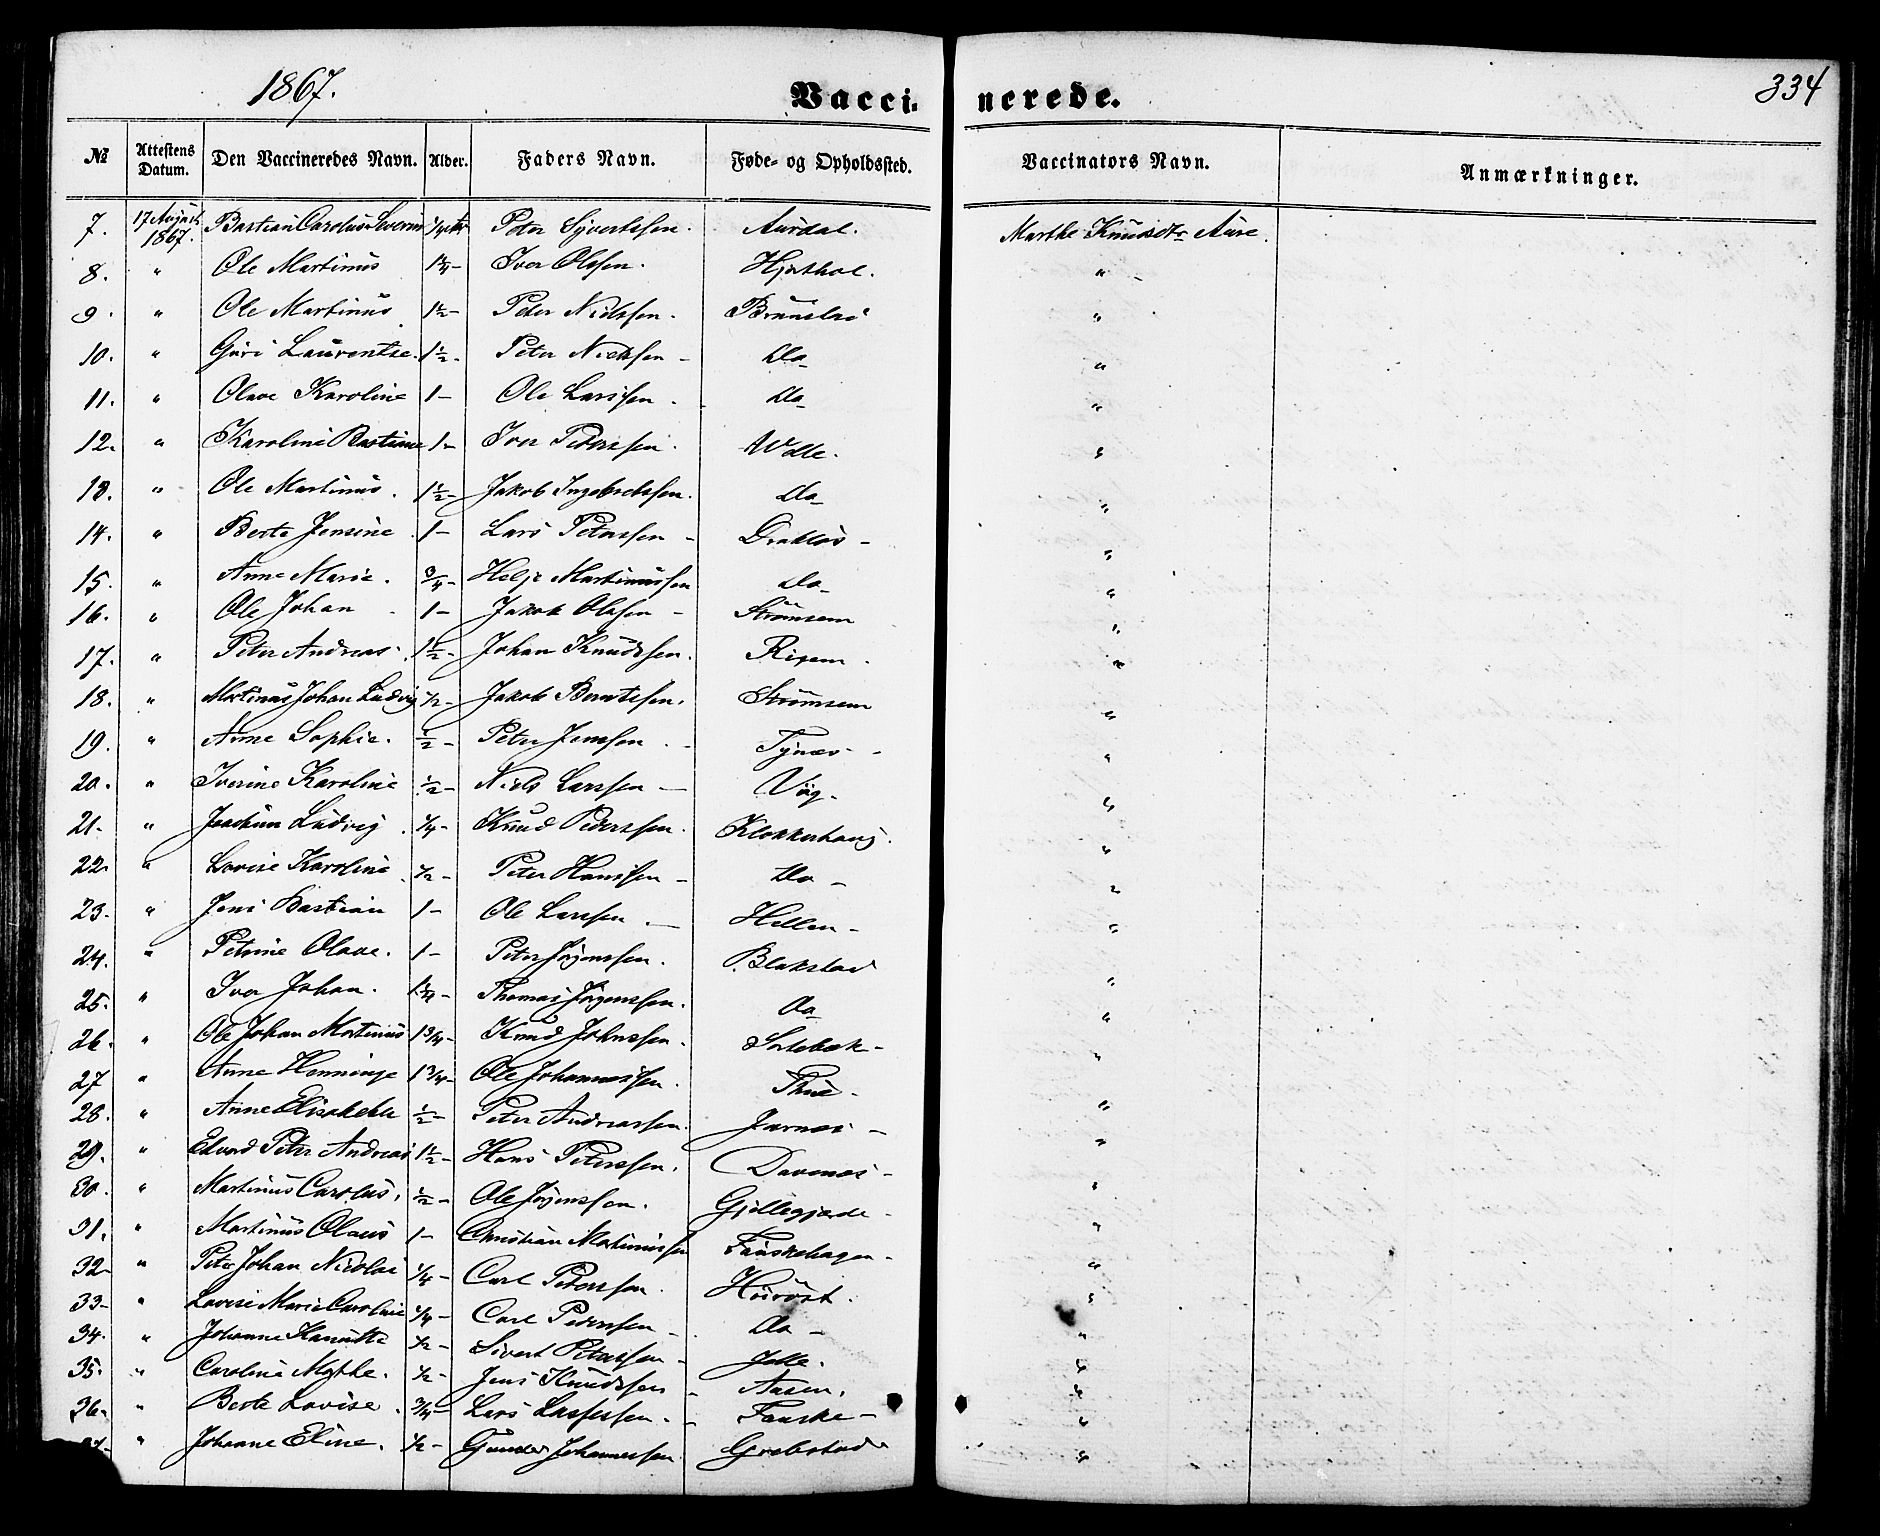 1867.
Vaccinerede.
334
№ Attestens Datum. Den Vaccineredes Navn. Alder. Faders Navn. Føde- og Opholdssted. Vaccinators Navn. Anmærkninger.
7. 17 August 1867. Bastian Carolus Severin 1/4 Peter Syvertssen. Aurdal. Marthe Knudsdtr Aure.
8. " Ole Martinus Iver Olssen. Hjorthol. "
9. " Ole Martinus 1 1/2 - Peter Nielssen. "
10. " Guri Laurentse. 1 1/2 - Peter Nielssen - Do "
11. " Olave Karoline 1 - Ole Larssen. Do "
12. " Karoline Bastiane 1 - Iver Peterssen. Velle. "
13. " Ole Martinus. 1 1/2 - Jakob Ingebretssen. Do "
14. " Berte Jensine 1 - Lars Peterssen - "
15. " Anne Marie. 3/4 - Helje Martinussen Do "
16. " Ole Johan 1 - Jakob Olssen - Strømsem "
17. " Peter Andreas 1 1/2 - Johan Knudssen. Risem. "
18. " Martinus Johan Ludvig 1/2 - Jakob Berntssen. Strømsem "
19. " Anne Sophie. 1/2 - Peter Jenssen. Tynæs - "
20. " Iverine Karoline 1/2 - Niels Larssen - Vig. "
21. " Joachim Ludvig 1/4 - Knud Pederssen. Klokkerhaug. "
22. " Lovise Karoline 1/2 - Peter Hanssen - Do - "
23. " Jens Bastian 1 - Ole Larssen. Hellen - "
24. " Petrine Olave. 1 - Peter Jørgenssen. Blakstad "
25. " Iver Johan. Thomas Jørgenssen. Do "
26. " Ole Johan Martinus 1 3/4 - Knud Johnssen. Sortebæk - "
27 " Anne Henninge 1 3/4 - Ole Johannessen. Thue - "
28. " Anne Elisabeth 1/2 - Peter Andreassen. Jarnæs - "
29. " Edvard Peter Andreas 1 1/2 - Hans Peterssen. Davenæs - "
30. " Martinus Carolus. 1/2 - Ole Jørgenssen. Gjøllegjærde - "
31. " Martinus Olaus 1 - Christian Martinussen Fauskehagen - "
32 " Peter Johan Nicolai 1/4 - Carl Peterssen. "
33 - " Lovise Marie Caroline 1/4 - Carl Pederssen Do - "
34. " Johanne Hanutte 1/2 - Sivert Peterssen - "
35. " Caroline Mathe. 1/2 - Jens Knudssen - Aasen. "
36. " Berte Lovise. 3/4 - Lars Lassessen. - Fauske - "
" Johanne Eline. 1/2 - Gunder Johannessen Grebstad "